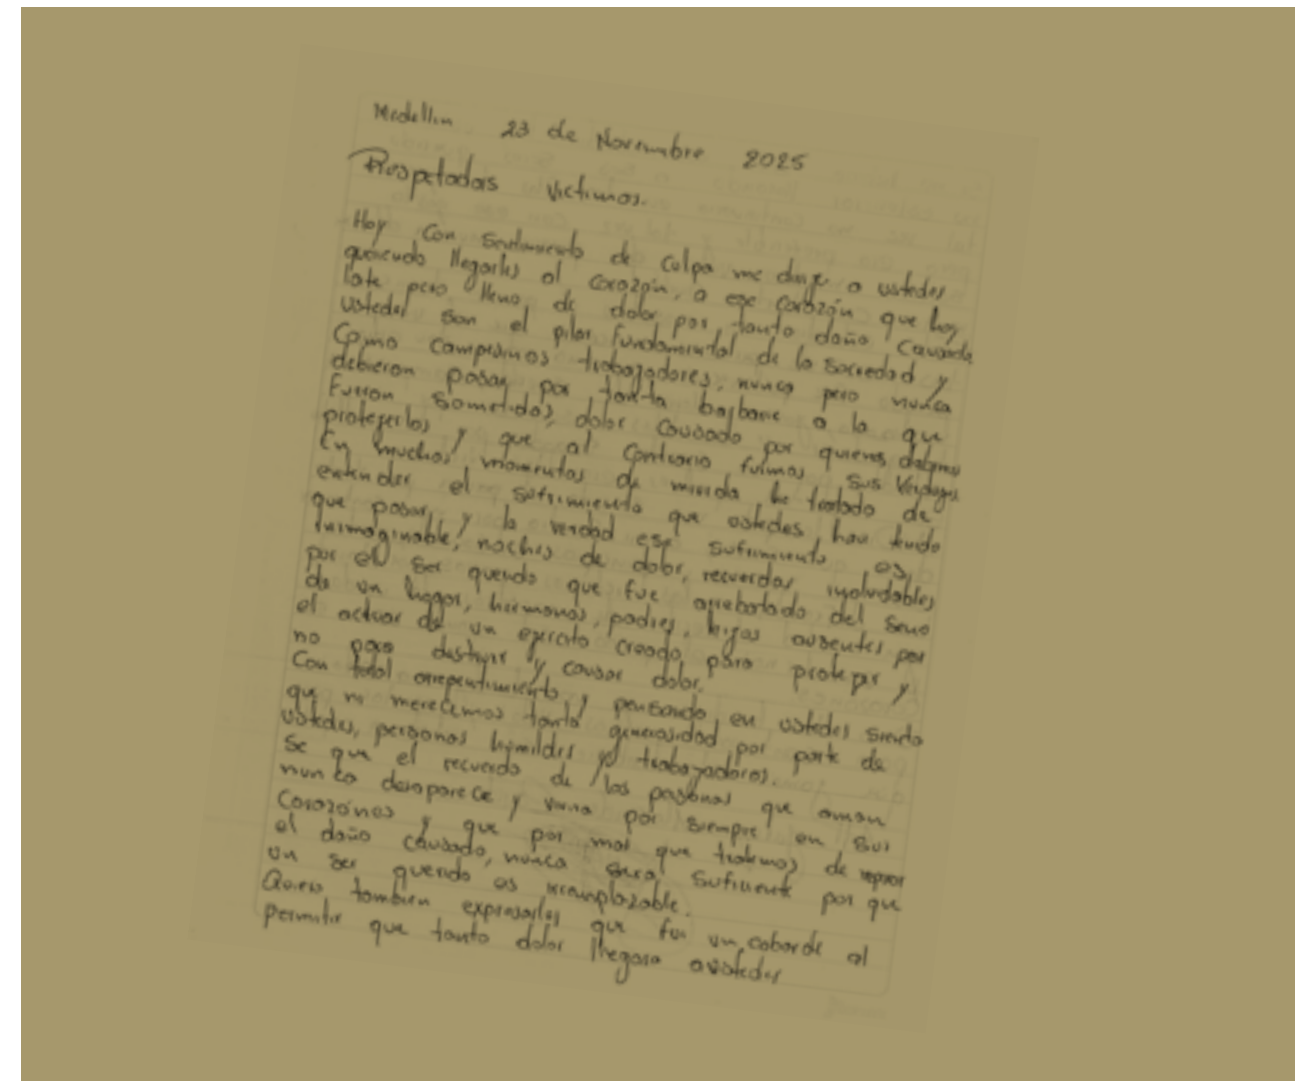 Medellin. 23 de Noviembre 2025
Respetadas victimas.
Hoy con sentimiento de culpa me dirijo a ustedes
queriendo llegarles al corazón, a ese corazón que hoy
late pero lleno de dolor por tanto daño causado
ustedes son el pilar fundamental de la sociedad y
como campesinos trabajadores, nunca pero nunca
debieron pasar por tanta barbarie a la que
fueron sometidos, dolor causado por quienes debiamos
protegerlos y que al contrario fuimos sus verdugos.
En muchos momentos de mi vida he tratado de
entender el sufrimiento que ustedes han tenido
que pasar, y la verdad ese sufrimiento es
inimaginable, noches de dolor, recuerdos inolvidables
por el ser querido que fue arrebatado del seno
de un hogar, hermanos, padres, hijos ausentes por
el actuar de un ejercito creado para proteger y
no para destruir y causar dolor.
Con total arrepentimiento y pensando en ustedes siento
que no merecemos tanta generosidad por parte de
ustedes, personas humildes y trabajadoras.
Se que el recuerdo de las personas que aman
nunca desaparece y vivira por siempre en sus
corazónes y que por mas que tratemos de reparar
el daño causado, nunca sera suficiente por que
un ser querido es irremplazable.
Quiero tambien expresarles que fui un cobarde al
permitir que tanto dolor llegara a ustedes